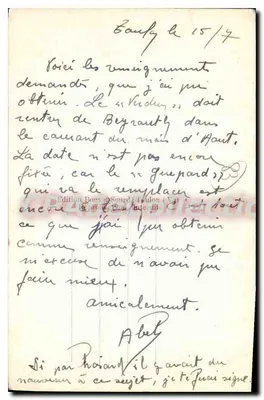 le 15/7
Voici les renseignements
demandés, que j'ai pu
obtenir. Le "Verdun" doit
rentrer de Beyrouth dans
le courant du mois d'Aout.
La date n'est pas encore
fixée, car le "Guépard",
qui va le remplacer est
encore à C'est tout
ce que j'ai pu obtenir
comme renseignement. Je
m'excuse de n'avoir pu
faire mieux.
amicalement.
Abel
Si par hasard il y avait du
nouveau à ce sujet, je te ferai signe.